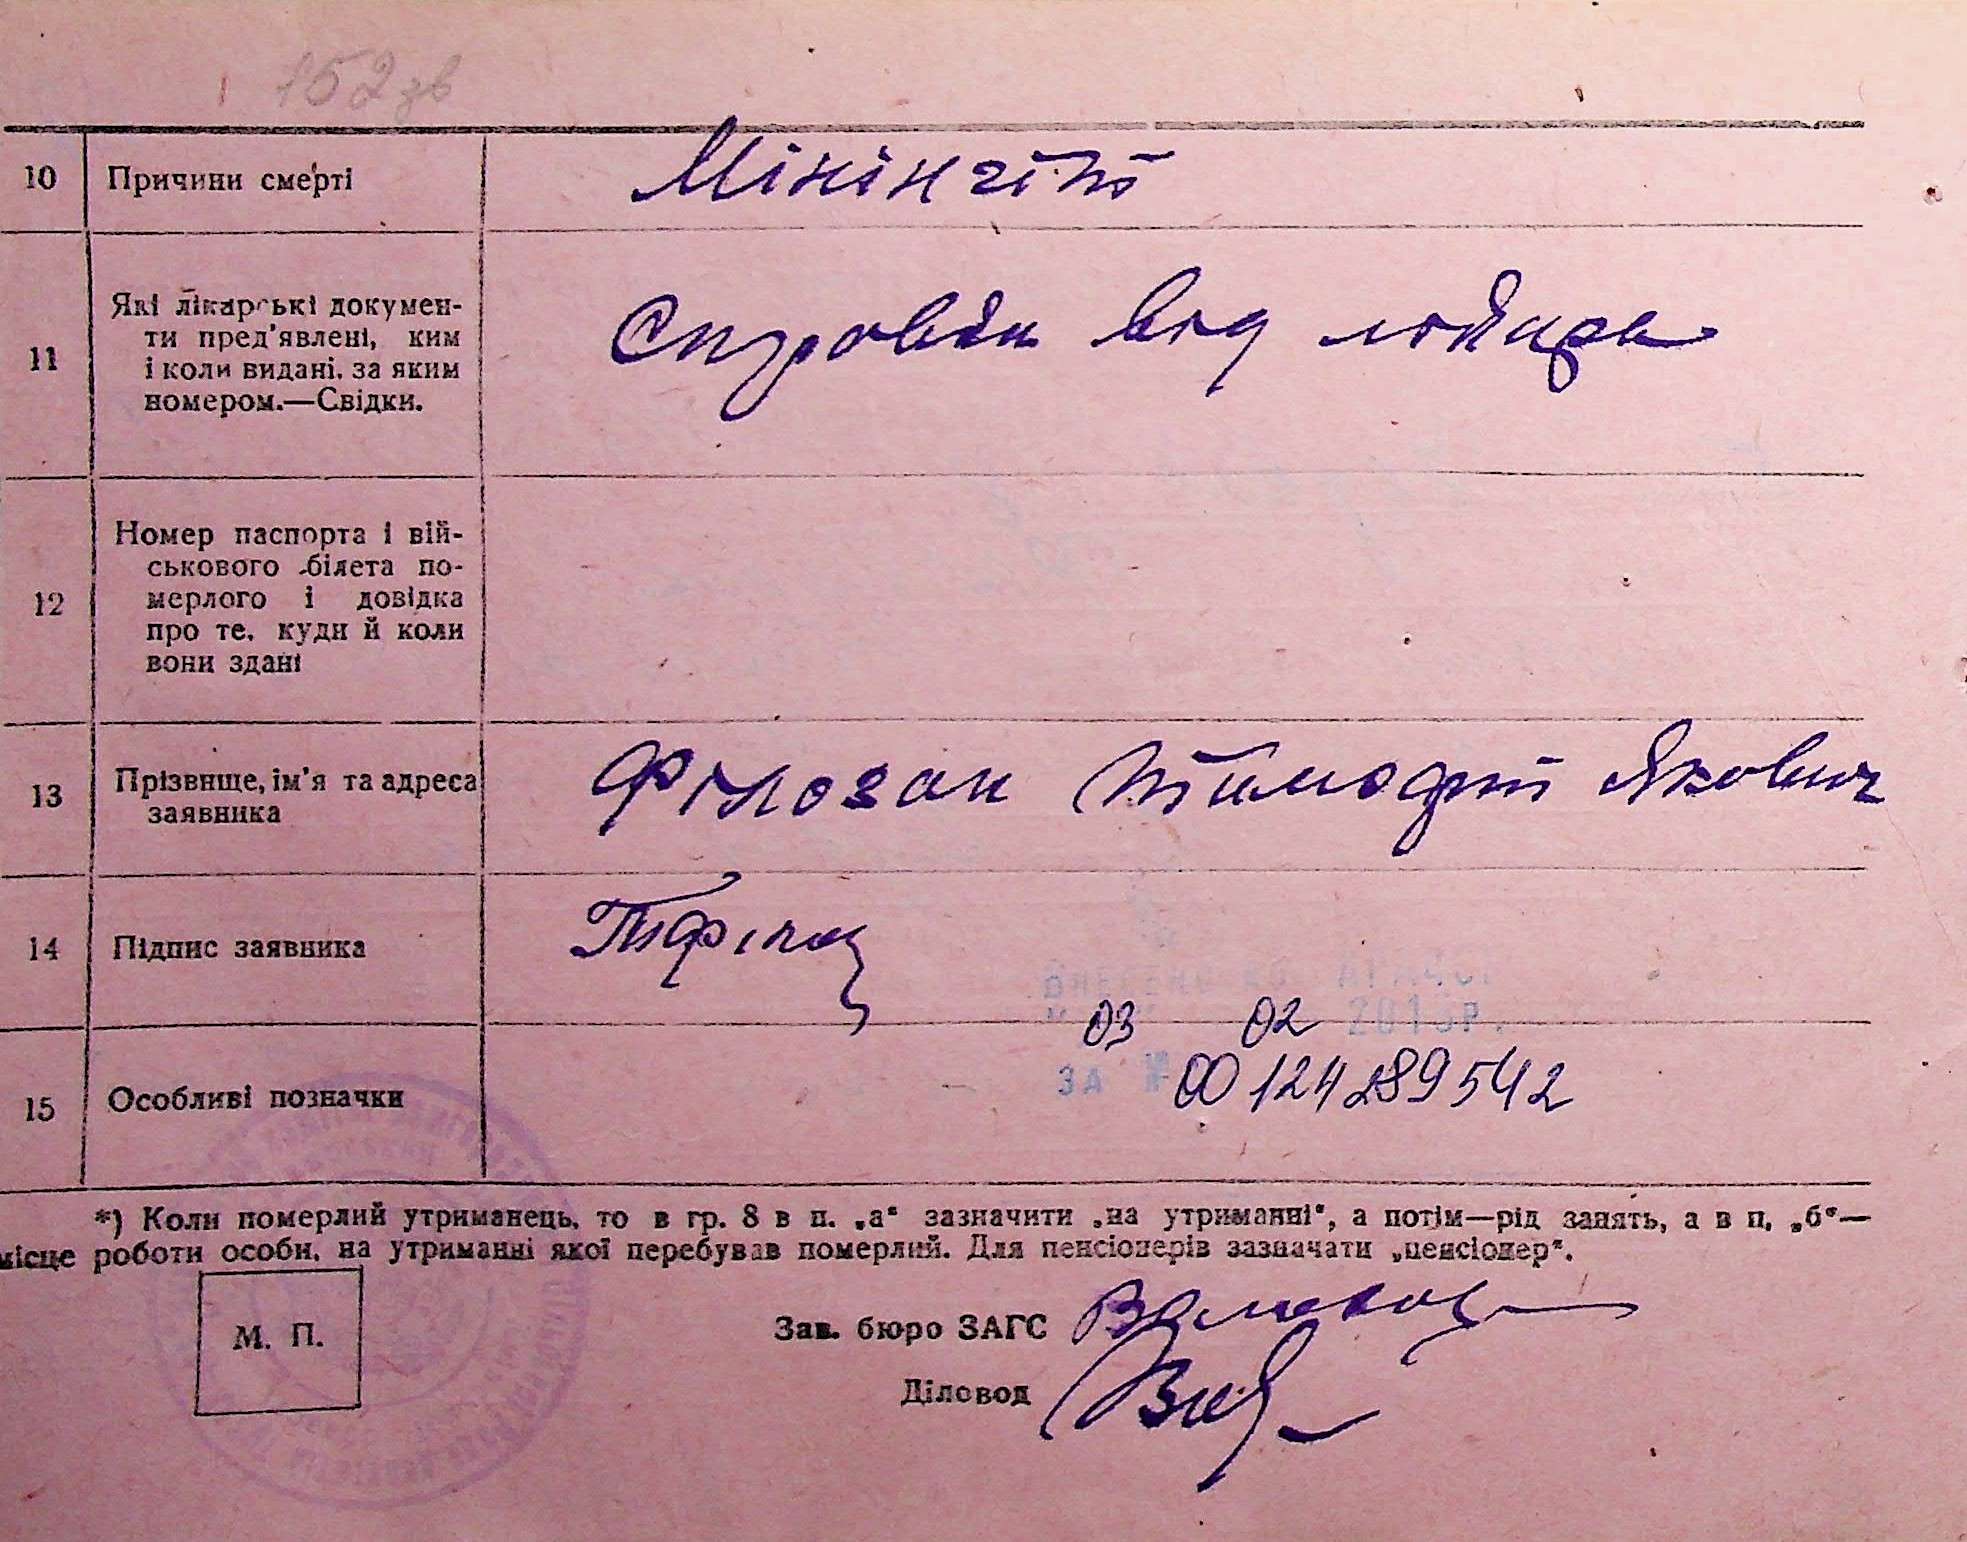 152 зв
10 Причини смерті Мінінгіт
11 Які лікарські докумен-
ти пред'явлені, ким
і коли видані, за яким
номером.—Свідки.
Справка від лікаря
12 Номер паспорта і вій-
ськового білета по-
мерлого і довідка
про те, куди й коли
вони здані
13 Прізвище, ім'я та адреса
заявника
Філозан Тимофій Якович
14 Підпис заявника
ВНЕСЕНО ДО
03 02 201 Р.
ЗА № 00124289542
15 Особливі позначки
*) Коли померлий утриманець, то в гр. 8 в п. „а“ зазначити „на утриманні“, а потім—рід занять, а в п. „б“—
місце роботи особи, на утриманні якої перебував померлий. Для пенсіонерів зазначати „пенсіонер“.
М. П.
Зав. бюро ЗАГС
Діловод